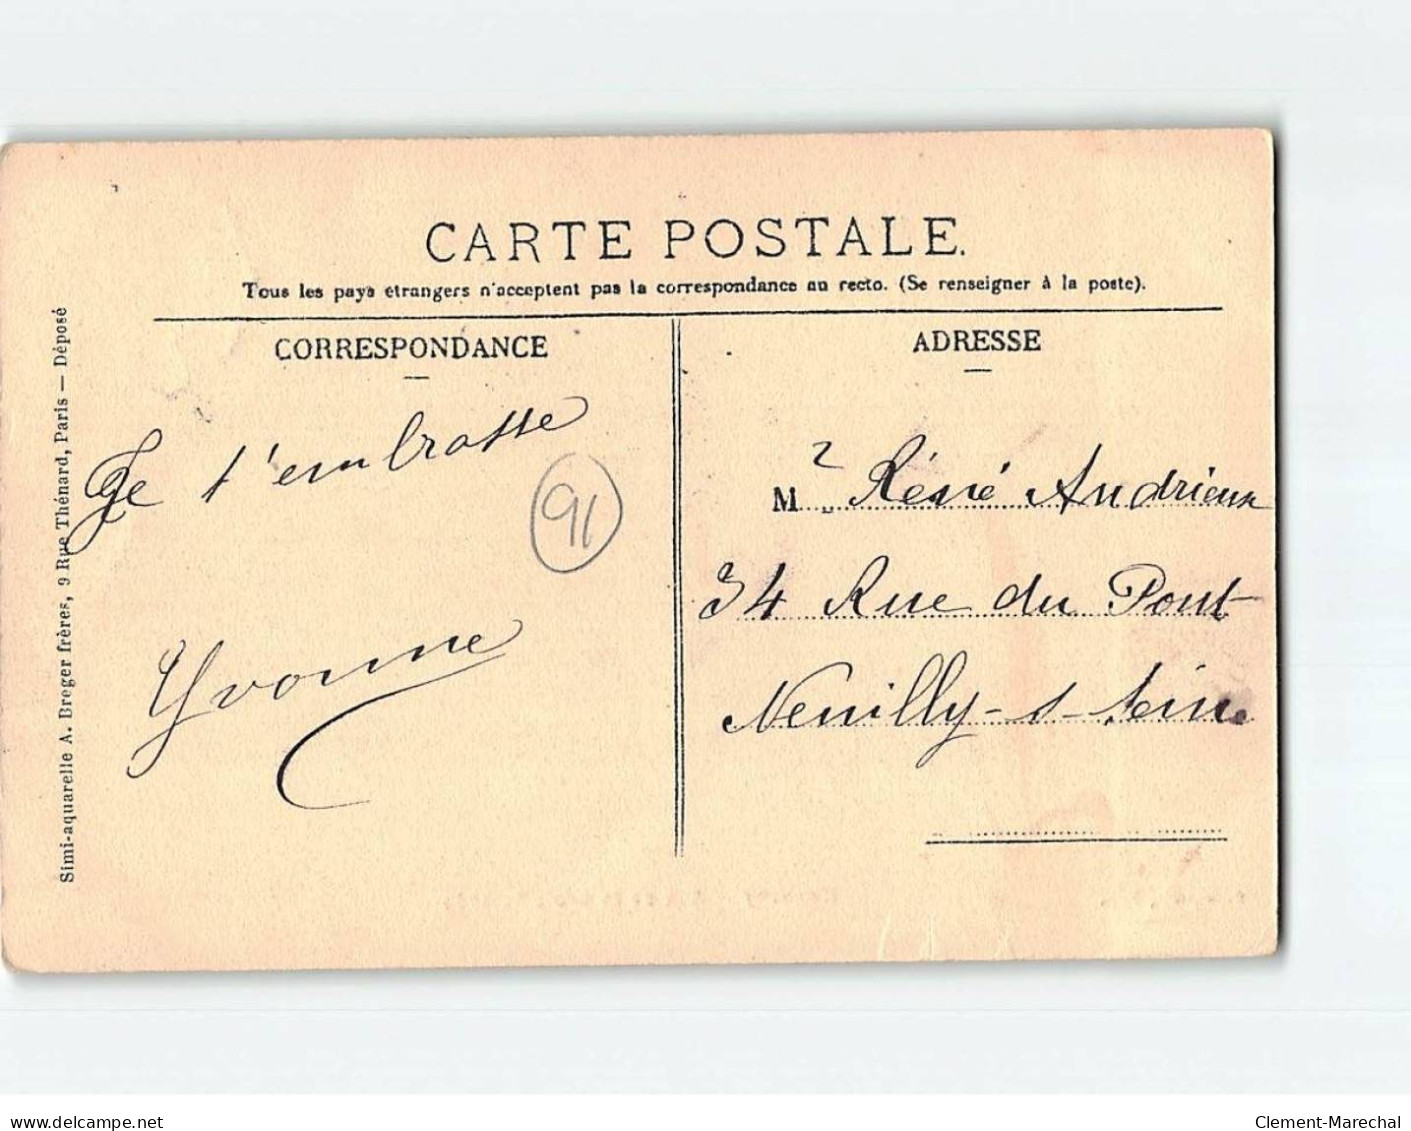 CARTE POSTALE.
Tous les pays étrangers n'acceptent pas la correspondance au recto. (Se renseigner à la poste).
CORRESPONDANCE
Je t'embrasse
91
Yvonne
ADRESSE
M r Réné Andrieux
34 Rue du Pont
Neuilly-s-Seine
Simi-aquarelle A. Breger frères, 9 Rue Thénard, Paris — Déposé
www.delcampe.net
Clement-Marechal